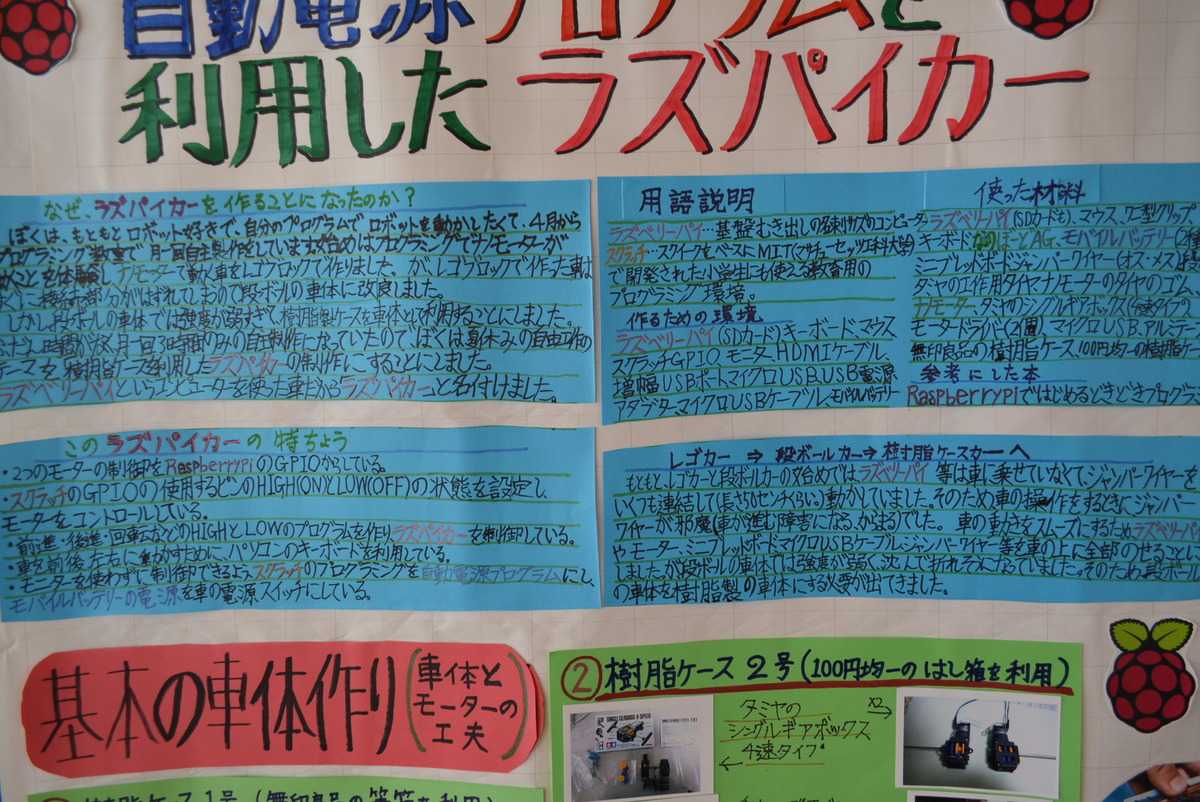 自動電源プログラムを
利用した ラズパイカー
なぜ、ラズパイカーを作ることになったのか?
ぼくは、もともとロボット好きで、自分のプログラムでロボットを動かしたくて、4月から
プログラミング教室で月一回自主製作をしています。始めはプログラミングでナノモーターが
動くことを体験し、ナノモーターで動く車をレゴブロックで作りました。が、レゴブロックで作った車は
接続部分がはずれてしまうので段ボールの車体に改良しました。
しかし段ボールの車体では強度が弱すぎて、樹脂製ケースを車体として利用することにしました。
時間が月一回3時間のみの自主制作になっていたので、ぼくは夏休みの自由工作の
テーマを、樹脂ケースを利用したラズパイカーの制作にすることにしました。
ラズベリーパイというコンピューターを使った車だからラズパイカーと名付けました。
用語説明
ラズベリーパイ…基盤むき出しの名刺サイズのコンピュータ
スクラッチ…スクイークをベースにMIT(マサチューセッツ工科大学)
で開発された小学生にも使える教育用の
プログラミング環境。
作るための環境
ラズベリーパイ(SDカード)キーボード、マウス
スクラッチGPIO モニタ、HDMIケーブル、
増幅USBポートマイクロUSB、USB電源
アダプターマイクロUSBケーブル、モバイルバッテリー
使った材料
ラズベリーパイ(SDカードも)、マウス、ワニ型クリップ、
キーボード AG、モバイルバッテリー(2種
ミニブレッドボードジャンパーワイヤー(オス・メス)
タミヤの工作用タイヤナノモーターのタイヤのゴム、
ナノモーター、タミヤのシングルギアボックス(4速タイプ)
モータードライバ(2個)、マイクロUSB、アルミテー
無印良品の樹脂ケース、100円均一の樹脂ケー
参考にした本
Raspberrypiではじめるどきどきプログラ
このラズパイカーの特ちょう
・2つのモーターの制御をRaspberrypiのGPIOからしている。
・スクラッチのGPIOの使用するピンのHIGH(ON)とLOW(OFF)の状態を設定し、
モーターをコントロールしている。
・前進・後進・回転などのHIGHとLOWのプログラムを作り、ラズパイカーを制御している。
・車を前後、左右に動かすために、パソコンのキーボードを利用している。
・モーターを使わずに制御できるよう、スクラッチのプログラミングを自動電源プログラムにし、
モバイルバッテリーの電源を車の電源スイッチにしている。
レゴカー ➔ 段ボールカー➔ 樹脂ケースカーへ
もともと、レゴカーと段ボールカーの始めではラズベリーパイ 等は車に乗せていなくて、ジャンパーワイヤーを
いくつも連結して(長さ センチくらい)動かしていました。そのため車の操作をするときに、ジャンパー
ワイヤーが邪魔(車が進む障害になる、からまる)でした。 車の動きをスムーズにするためラズベリーパイ
やモーター、ミニブレッドボード、マイクロUSBケーブル、ジャンパーワイヤー等を車の上に全部のせることに
しましたが段ボールの車体では強度が弱く、沈んで折れそうになっていました。そのため、段ボール
の車体を樹脂製の車体にする必要が出てきました。
基本の車体作り(車体と
モーターの
工夫)
②樹脂ケース2号(100円均一のはし箱を利用)
タミヤの
シングルギアボックス
4速タイプ
X2
樹脂ケース1号(無印良品の筆箱を利用)